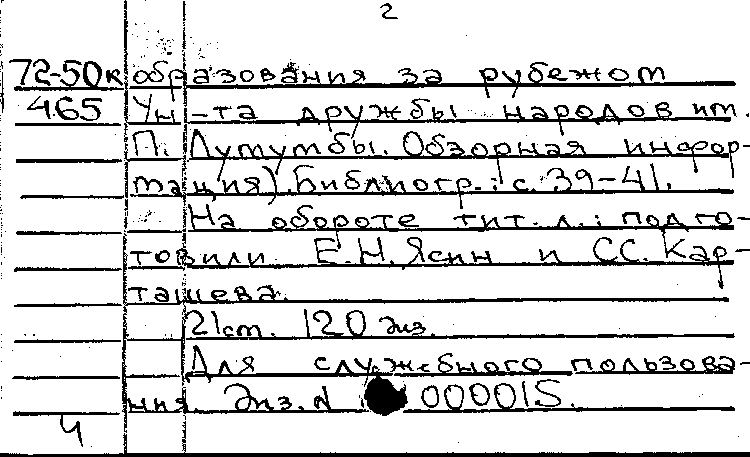 2
72-50к образования за рубежом
465 Ун-та дружбы народов им.
П. Лумумбы. Обзорная инфор-
мация). Библиогр.: с. 39-41.
На обороте тит. л.: подго-
товили Е.Н. Ясин и С.С. Кар-
ташева.
21 ст. 120 экз.
Для служебного пользова-
ния. Экз. N 000015.
4